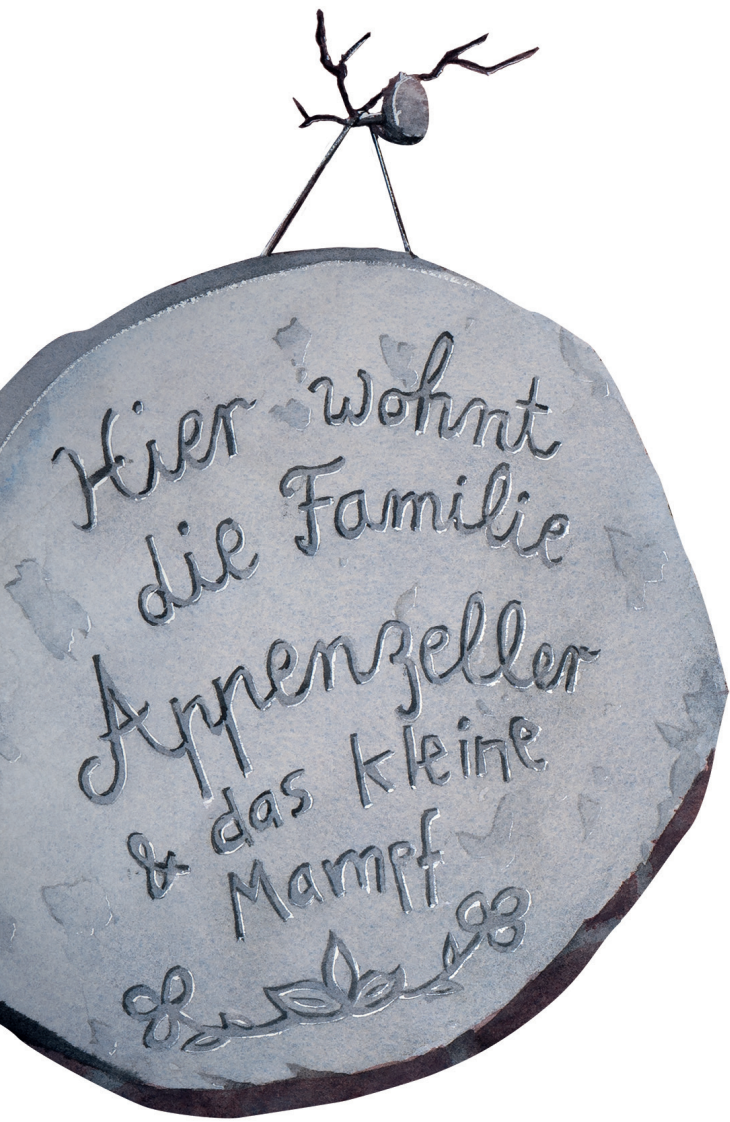 Hier wohnt
die Familie
Appenzeller
& das kleine
Mampf